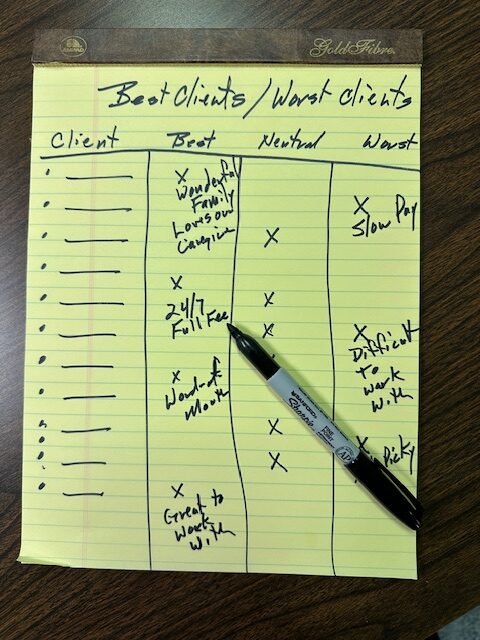 AMPAD
Gold Fibre.
Best Clients / Worst Clients
Client Best Neutral Worst
X
Wonderful
Family
Loves our
Caregiver
X
Slow Pay
X
X
24/7
Full Fee
X
X
X
Difficult
to
work
with
X
Word-of
Mouth
X
X
Picky
X
X
Great to
Work
With
Sharpie
FINE POINT
AP